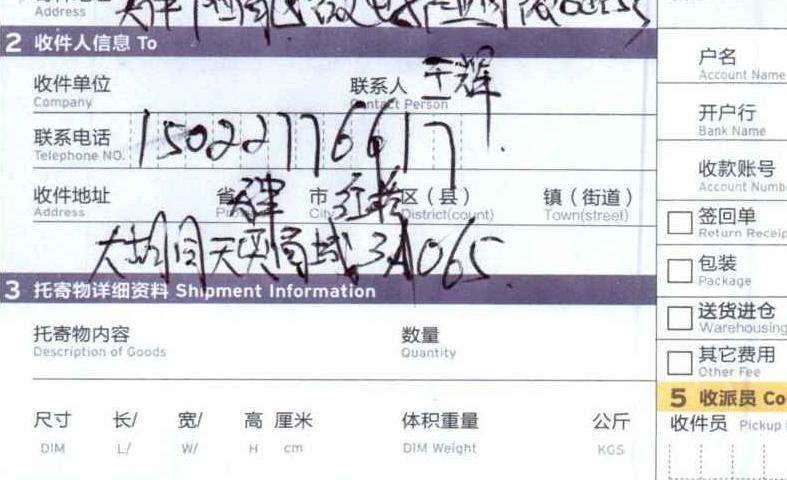 Address
2 收件人信息 To
收件单位 联系人 王辉
Company Contact Person
联系电话 15022776617
Telephone NO.
收件地址 省 天津 市 红桥 区（县） 镇（街道）
Address City District(count) Town(street)
大胡同天奕商城3A065
3 托寄物详细资料 Shipment Information
托寄物内容 数量
Description of Goods Quantity
尺寸 长/ 宽/ 高 厘米 体积重量 公斤
DIM L/ W/ H cm DIM Weight KGS
户名
Account Name
开户行
Bank Name
收款账号
Account Numb
签回单
Return Receip
包装
Package
送货进仓
Warehousing
其它费用
Other Fee
5 收派员 Co
收件员 Pickup